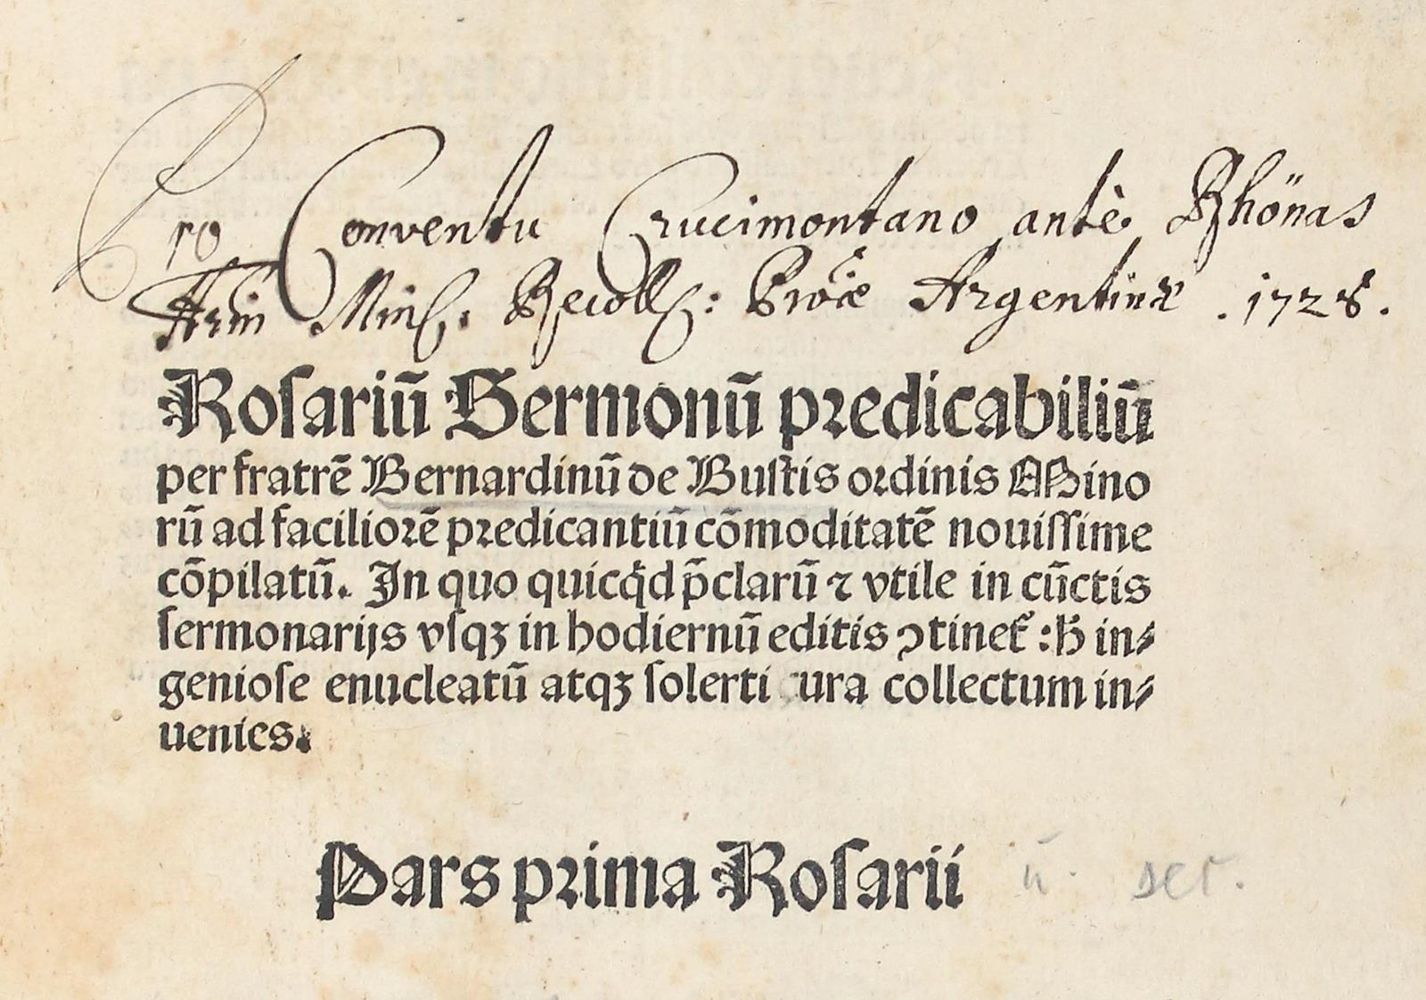 Pro Conventu Crucimontano antè Rhönas
Min͡s. Recoll: Prõcæ Argentinæ . 1728.
Roſariũ Sermonũ predicabiliũ
per fratrẽ Bernardinũ de Buſtis ordinis Mino
rũ ad faciliorẽ predicantiũ cõmoditatẽ nouiſſime
cõpilatũ. In quo quicq̃d p̃clarũ ⁊ vtile in cũctis
ſermonarijs vſqꝫ in hodiernũ editis ꝯtinet᷑ : h̃ in⸗
genioſe enucleatũ atqꝫ ſolerti cura collectum in⸗
uenies.
Pars prima Roſarii